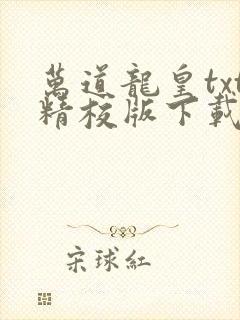 萬道龍皇txt
精校版下載
宋球紅